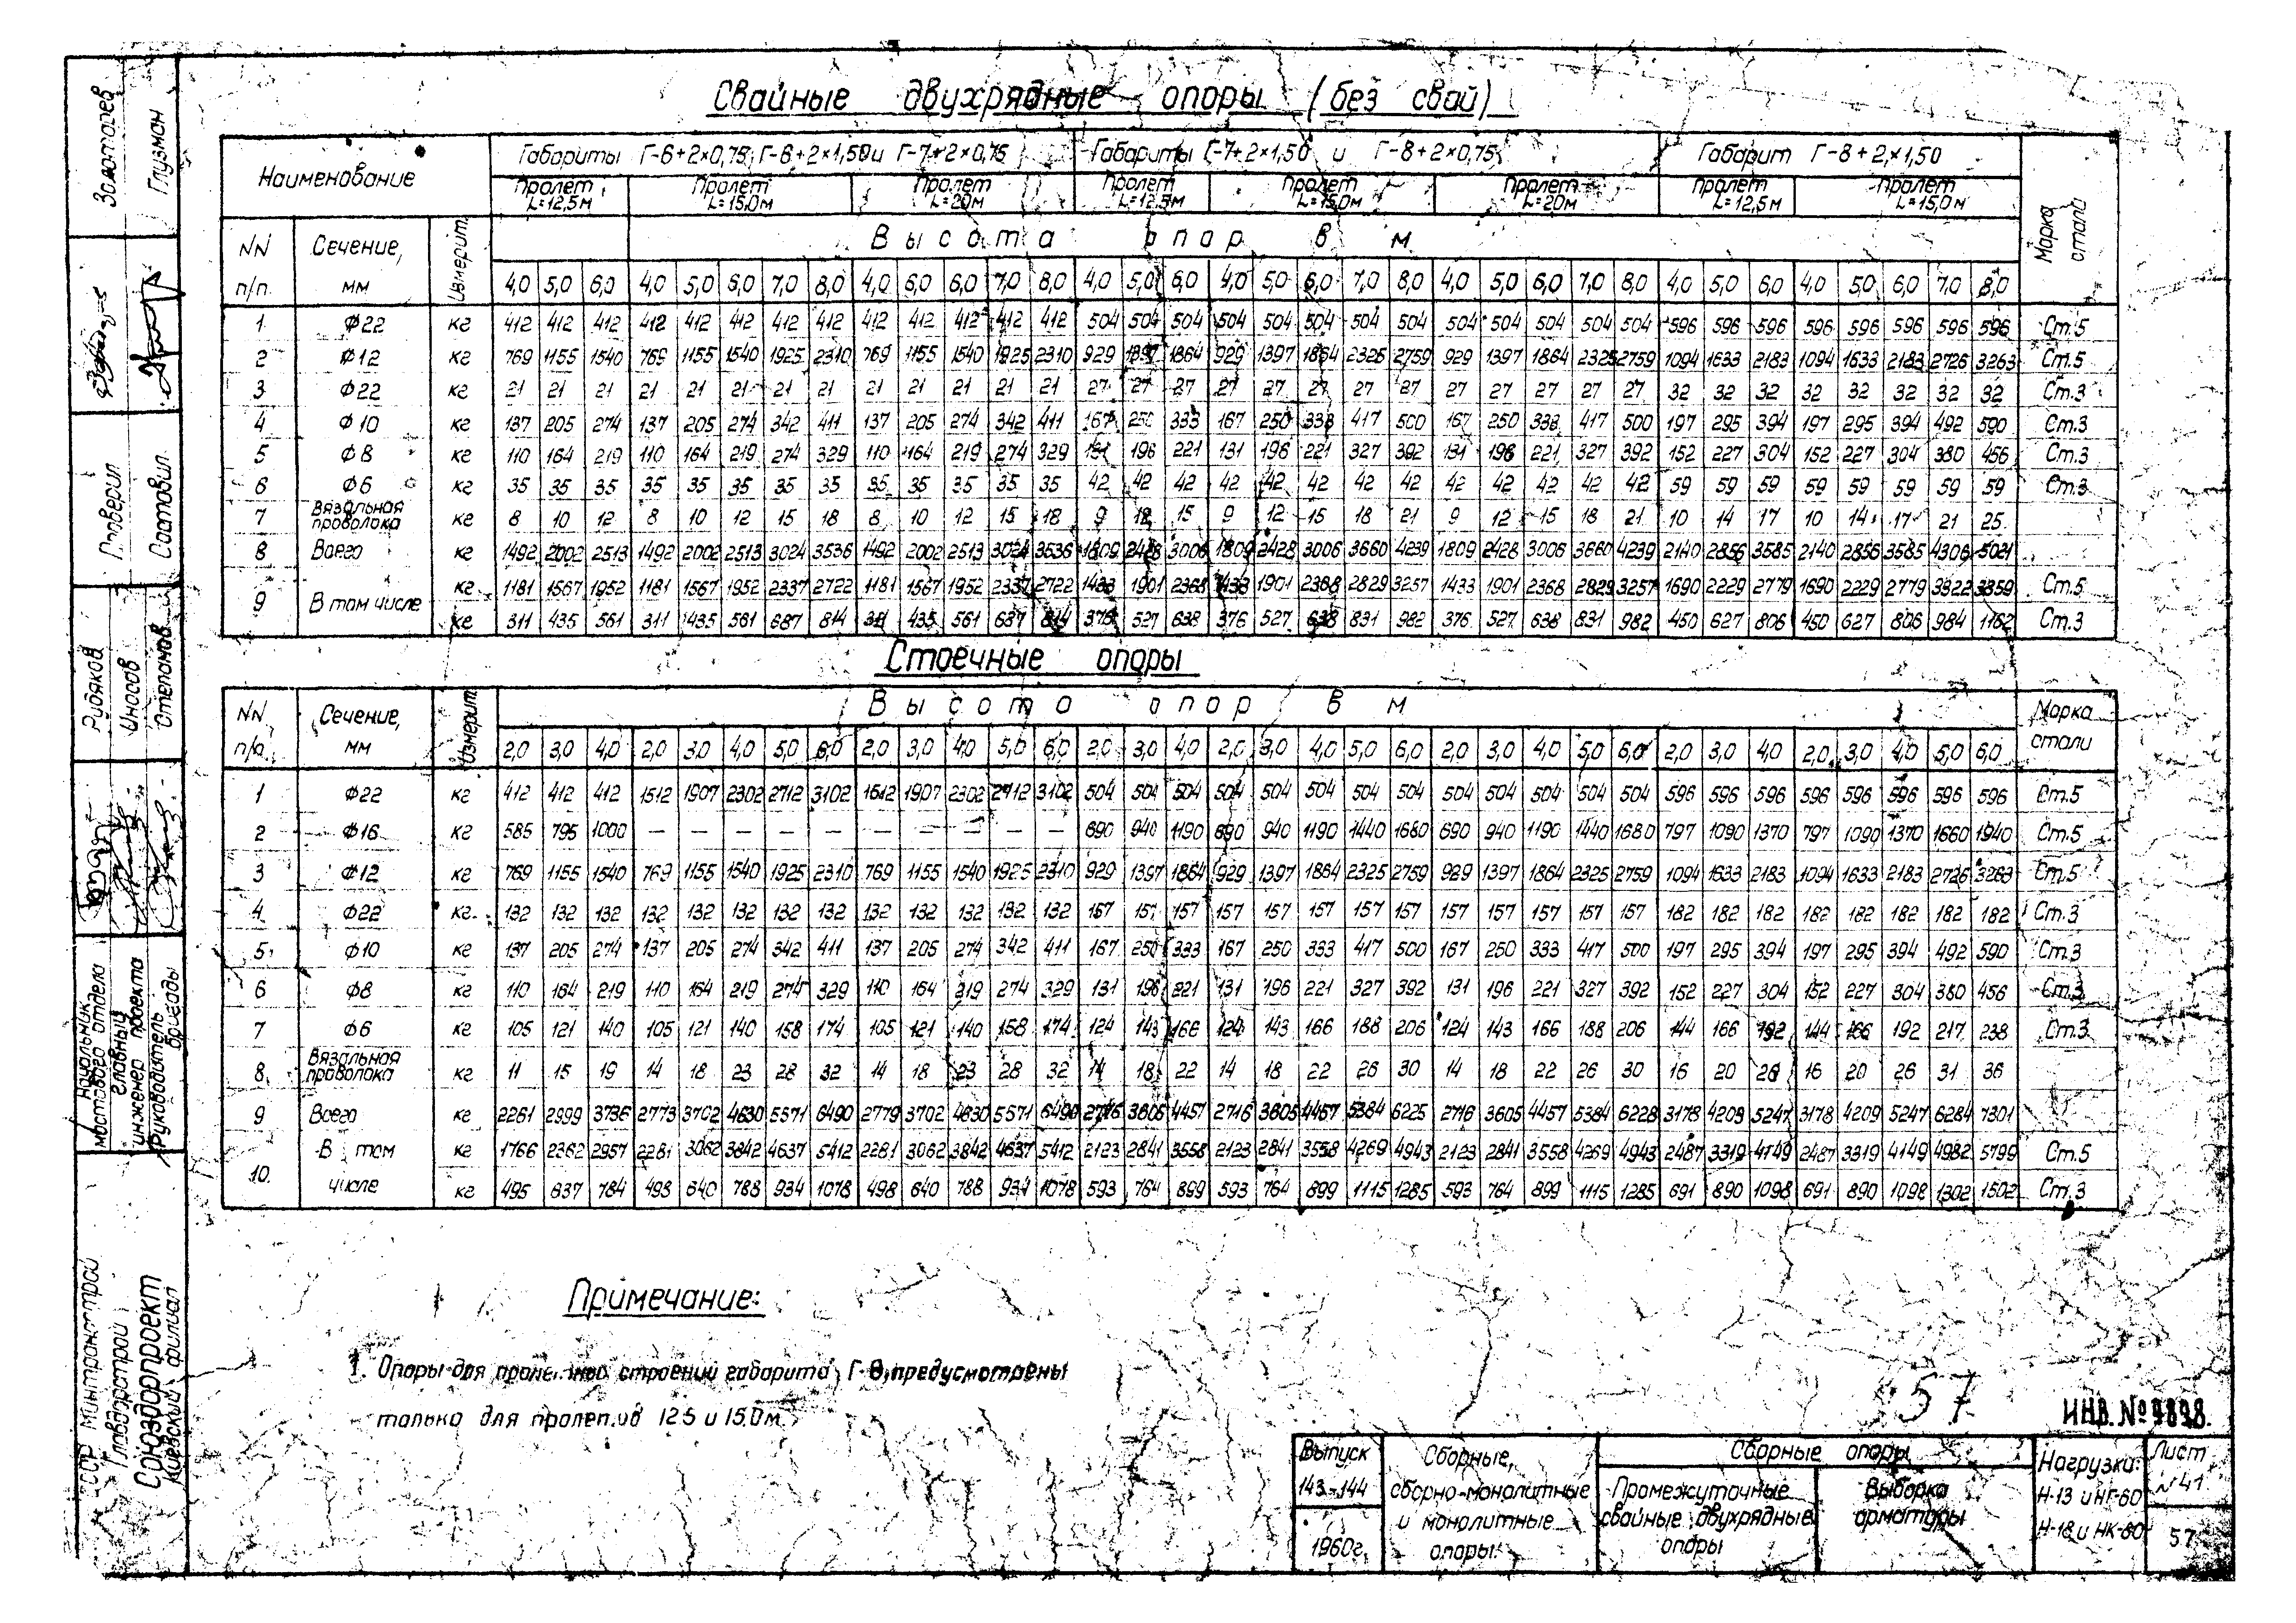 Свайные двухрядные опоры (без свай)
Наименование
Габариты Г-6+2×0,75; Г-6+2×1,50 и Г-7+2×0,75
Габариты Г-7+2×1,50 и Г-8+2×0,75
Габарит Г-8+2×1,50
Марка стали
Пролет L=12,5м
Пролет L=15,0м
Пролет L=20м
Пролет L=12,5м
Пролет L=15,0м
Пролет L=20м
Пролет L=12,5м
Пролет L=15,0м
NN п/п
Сечение, мм
Измерит.
Высота опор в м
4,0 5,0 6,0 4,0 5,0 6,0 7,0 8,0 4,0 6,0 6,0 7,0 8,0 4,0 5,0 6,0 4,0 5,0 6,0 7,0 8,0 4,0 5,0 6,0 7,0 8,0 4,0 5,0 6,0 4,0 5,0 6,0 7,0 8,0
1 Ф22 кг 412 412 412 412 412 412 412 412 412 412 412 412 412 504 504 504 504 504 504 504 504 504 504 504 504 504 596 596 596 596 596 596 596 596 Ст.5
2 Ф12 кг 769 1155 1540 769 1155 1540 1925 2310 769 1155 1540 1925 2310 929 1397 1864 929 1397 1864 2325 2759 929 1397 1864 2325 2759 1094 1633 2183 1094 1633 2183 2726 3263 Ст.5
3 Ф22 кг 21 21 21 21 21 21 21 21 21 21 21 21 21 27 27 27 27 27 27 27 27 27 27 27 27 27 32 32 32 32 32 32 32 32 Ст.3
4 Ф10 кг 137 205 274 137 205 274 342 411 137 205 274 342 411 167 250 333 167 250 333 417 500 167 250 333 417 500 197 295 394 197 295 394 492 590 Ст.3
5 Ф8 кг 110 164 219 110 164 219 274 329 110 164 219 274 329 131 196 221 131 196 221 327 392 131 196 221 327 392 152 227 304 152 227 304 380 456 Ст.3
6 Ф6 кг 35 35 35 35 35 35 35 35 35 35 35 35 35 42 42 42 42 42 42 42 42 42 42 42 42 42 59 59 59 59 59 59 59 59 Ст.3
7 Вязальная проволока кг 8 10 12 8 10 12 15 18 8 10 12 15 18 9 12 15 9 12 15 18 21 9 12 15 18 21 10 14 17 10 14 17 21 25
8 Всего кг 1492 2002 2513 1492 2002 2513 3024 3536 1492 2002 2513 3024 3536 1809 2428 3006 1809 2428 3006 3660 4239 1809 2428 3006 3660 4239 2140 2856 3585 2140 2856 3585 4306 5021
9 В том числе кг 1181 1567 1952 1181 1567 1952 2337 2722 1181 1567 1952 2337 2722 1433 1901 2368 1433 1901 2368 2829 3257 1433 1901 2368 2829 3257 1690 2229 2779 1690 2229 2779 3322 3859 Ст.5
кг 311 435 561 311 435 561 687 814 311 435 561 687 814 376 527 638 376 527 638 831 982 376 527 638 831 982 450 627 806 450 627 806 984 1162 Ст.3
Стоечные опоры
NN п/п
Сечение, мм
Измерит.
Высота опор в м
Марка стали
2,0 3,0 4,0 2,0 3,0 4,0 5,0 6,0 2,0 3,0 4,0 5,0 6,0 2,0 3,0 4,0 2,0 3,0 4,0 5,0 6,0 2,0 3,0 4,0 5,0 6,0 2,0 3,0 4,0 2,0 3,0 4,0 5,0 6,0
1 Ф22 кг 412 412 412 1512 1907 2302 2712 3102 1512 1907 2302 2712 3102 504 504 504 504 504 504 504 504 504 504 504 504 504 596 596 596 596 596 596 596 596 Ст.5
2 Ф16 кг 585 795 1000 — — — — — — — — — — 690 940 1190 690 940 1190 1440 1680 690 940 1190 1440 1680 797 1090 1370 797 1090 1370 1660 1940 Ст.5
3 Ф12 кг 769 1155 1540 769 1155 1540 1925 2310 769 1155 1540 1925 2310 929 1397 1864 929 1397 1864 2325 2759 929 1397 1864 2325 2759 1094 1633 2183 1094 1633 2183 2726 3263 Ст.5
4 Ф22 кг 132 132 132 132 132 132 132 132 132 132 132 132 132 157 157 157 157 157 157 157 157 157 157 157 157 157 182 182 182 182 182 182 182 182 Ст.3
5 Ф10 кг 137 205 274 137 205 274 342 411 137 205 274 342 411 167 250 333 167 250 333 417 500 167 250 333 417 500 197 295 394 197 295 394 492 590 Ст.3
6 Ф8 кг 110 164 219 110 164 219 274 329 110 164 219 274 329 131 196 221 131 196 221 327 392 131 196 221 327 392 152 227 304 152 227 304 380 456 Ст.3
7 Ф6 кг 105 121 140 105 121 140 158 174 105 121 140 158 174 124 143 166 124 143 166 188 206 124 143 166 188 206 144 166 192 144 166 192 217 238 Ст.3
8 Вязальная проволока кг 11 15 19 14 18 23 28 32 14 18 23 28 32 14 18 22 14 18 22 26 30 14 18 22 26 30 16 20 26 16 20 26 31 36
9 Всего кг 2261 2999 3736 2773 3702 4630 5571 6490 2779 3702 4630 5571 6490 2716 3605 4457 2716 3605 4457 5384 6225 2716 3605 4457 5384 6228 3178 4209 5247 3178 4209 5247 6284 7301
10. В том числе кг 1766 2362 2957 2281 3062 3842 4637 5412 2281 3062 3842 4637 5412 2123 2841 3558 2123 2841 3558 4269 4943 2123 2841 3558 4269 4943 2487 3319 4149 2487 3319 4149 4982 5799 Ст.5
кг 495 637 784 498 640 788 934 1078 498 640 788 934 1078 593 764 899 593 764 899 1115 1285 593 764 899 1115 1285 691 890 1098 691 890 1098 1302 1502 Ст.3
Примечание:
1. Опоры для строений габарита Г-8, предусмотрены
только для 12.5 и 15.0м.
57
ИНВ. № 9898.
Выпуск 143-144
1960г.
Сборные,
сборно-монолитные
и монолитные
опоры.
Сборные опоры
Промежуточные
свайные двухрядные
опоры
Выборка
арматуры
Нагрузки:
Н-13 и НГ-60
Н-18 и НК-80
Лист
№41
57
Золотарев
Глузман
Проверил
Составил
Рудяков
Иносов
Начальник
мостового отдела
Главный
инженер проекта
Руководитель
бригады
СССР Минтрансстрой
Главдорстрой
Союздорпроект
Киевский филиал